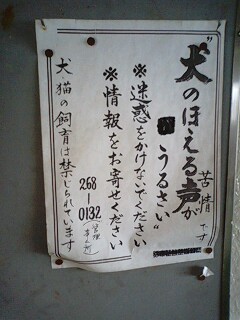 "犬のほえる声が
うるさい"
苦情です
※迷惑をかけないでください
※情報をお寄せください
268-0132
管理事ム所
犬猫の飼育は禁じられています